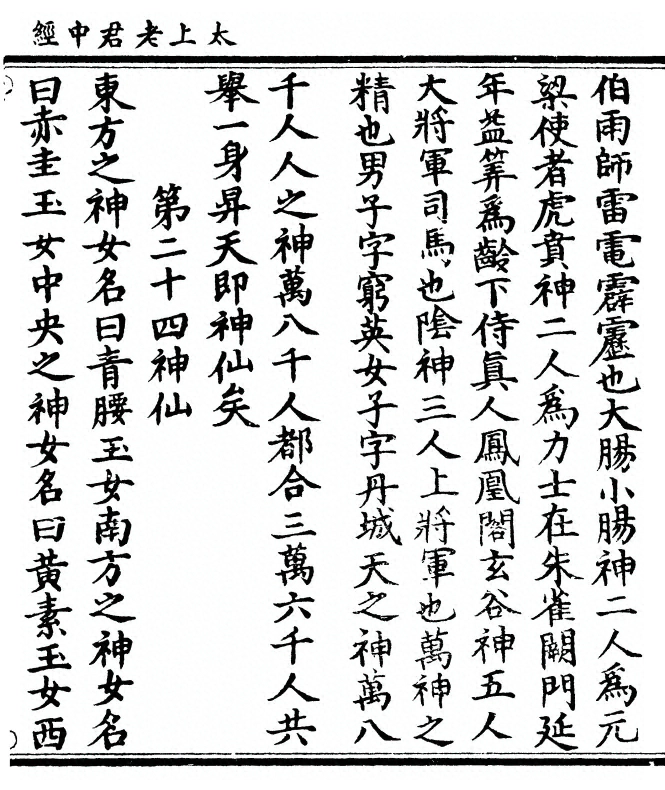 太上老君中經
伯雨師雷電霹靂也大腸小腸神二人爲元
梁使者虎賁神二人爲力士在朱雀闕門延
年益筭爲齡下侍眞人鳳凰閣玄谷神五人
大將軍司馬也陰神三人上將軍也萬神之
精也男子字窮英女子字丹城天之神萬八
千人人之神萬八千人都合三萬六千人共
舉一身昇天即神仙矣
第二十四神仙
東方之神女名曰青腰玉女南方之神女名
曰赤圭玉女中央之神女名曰黃素玉女西